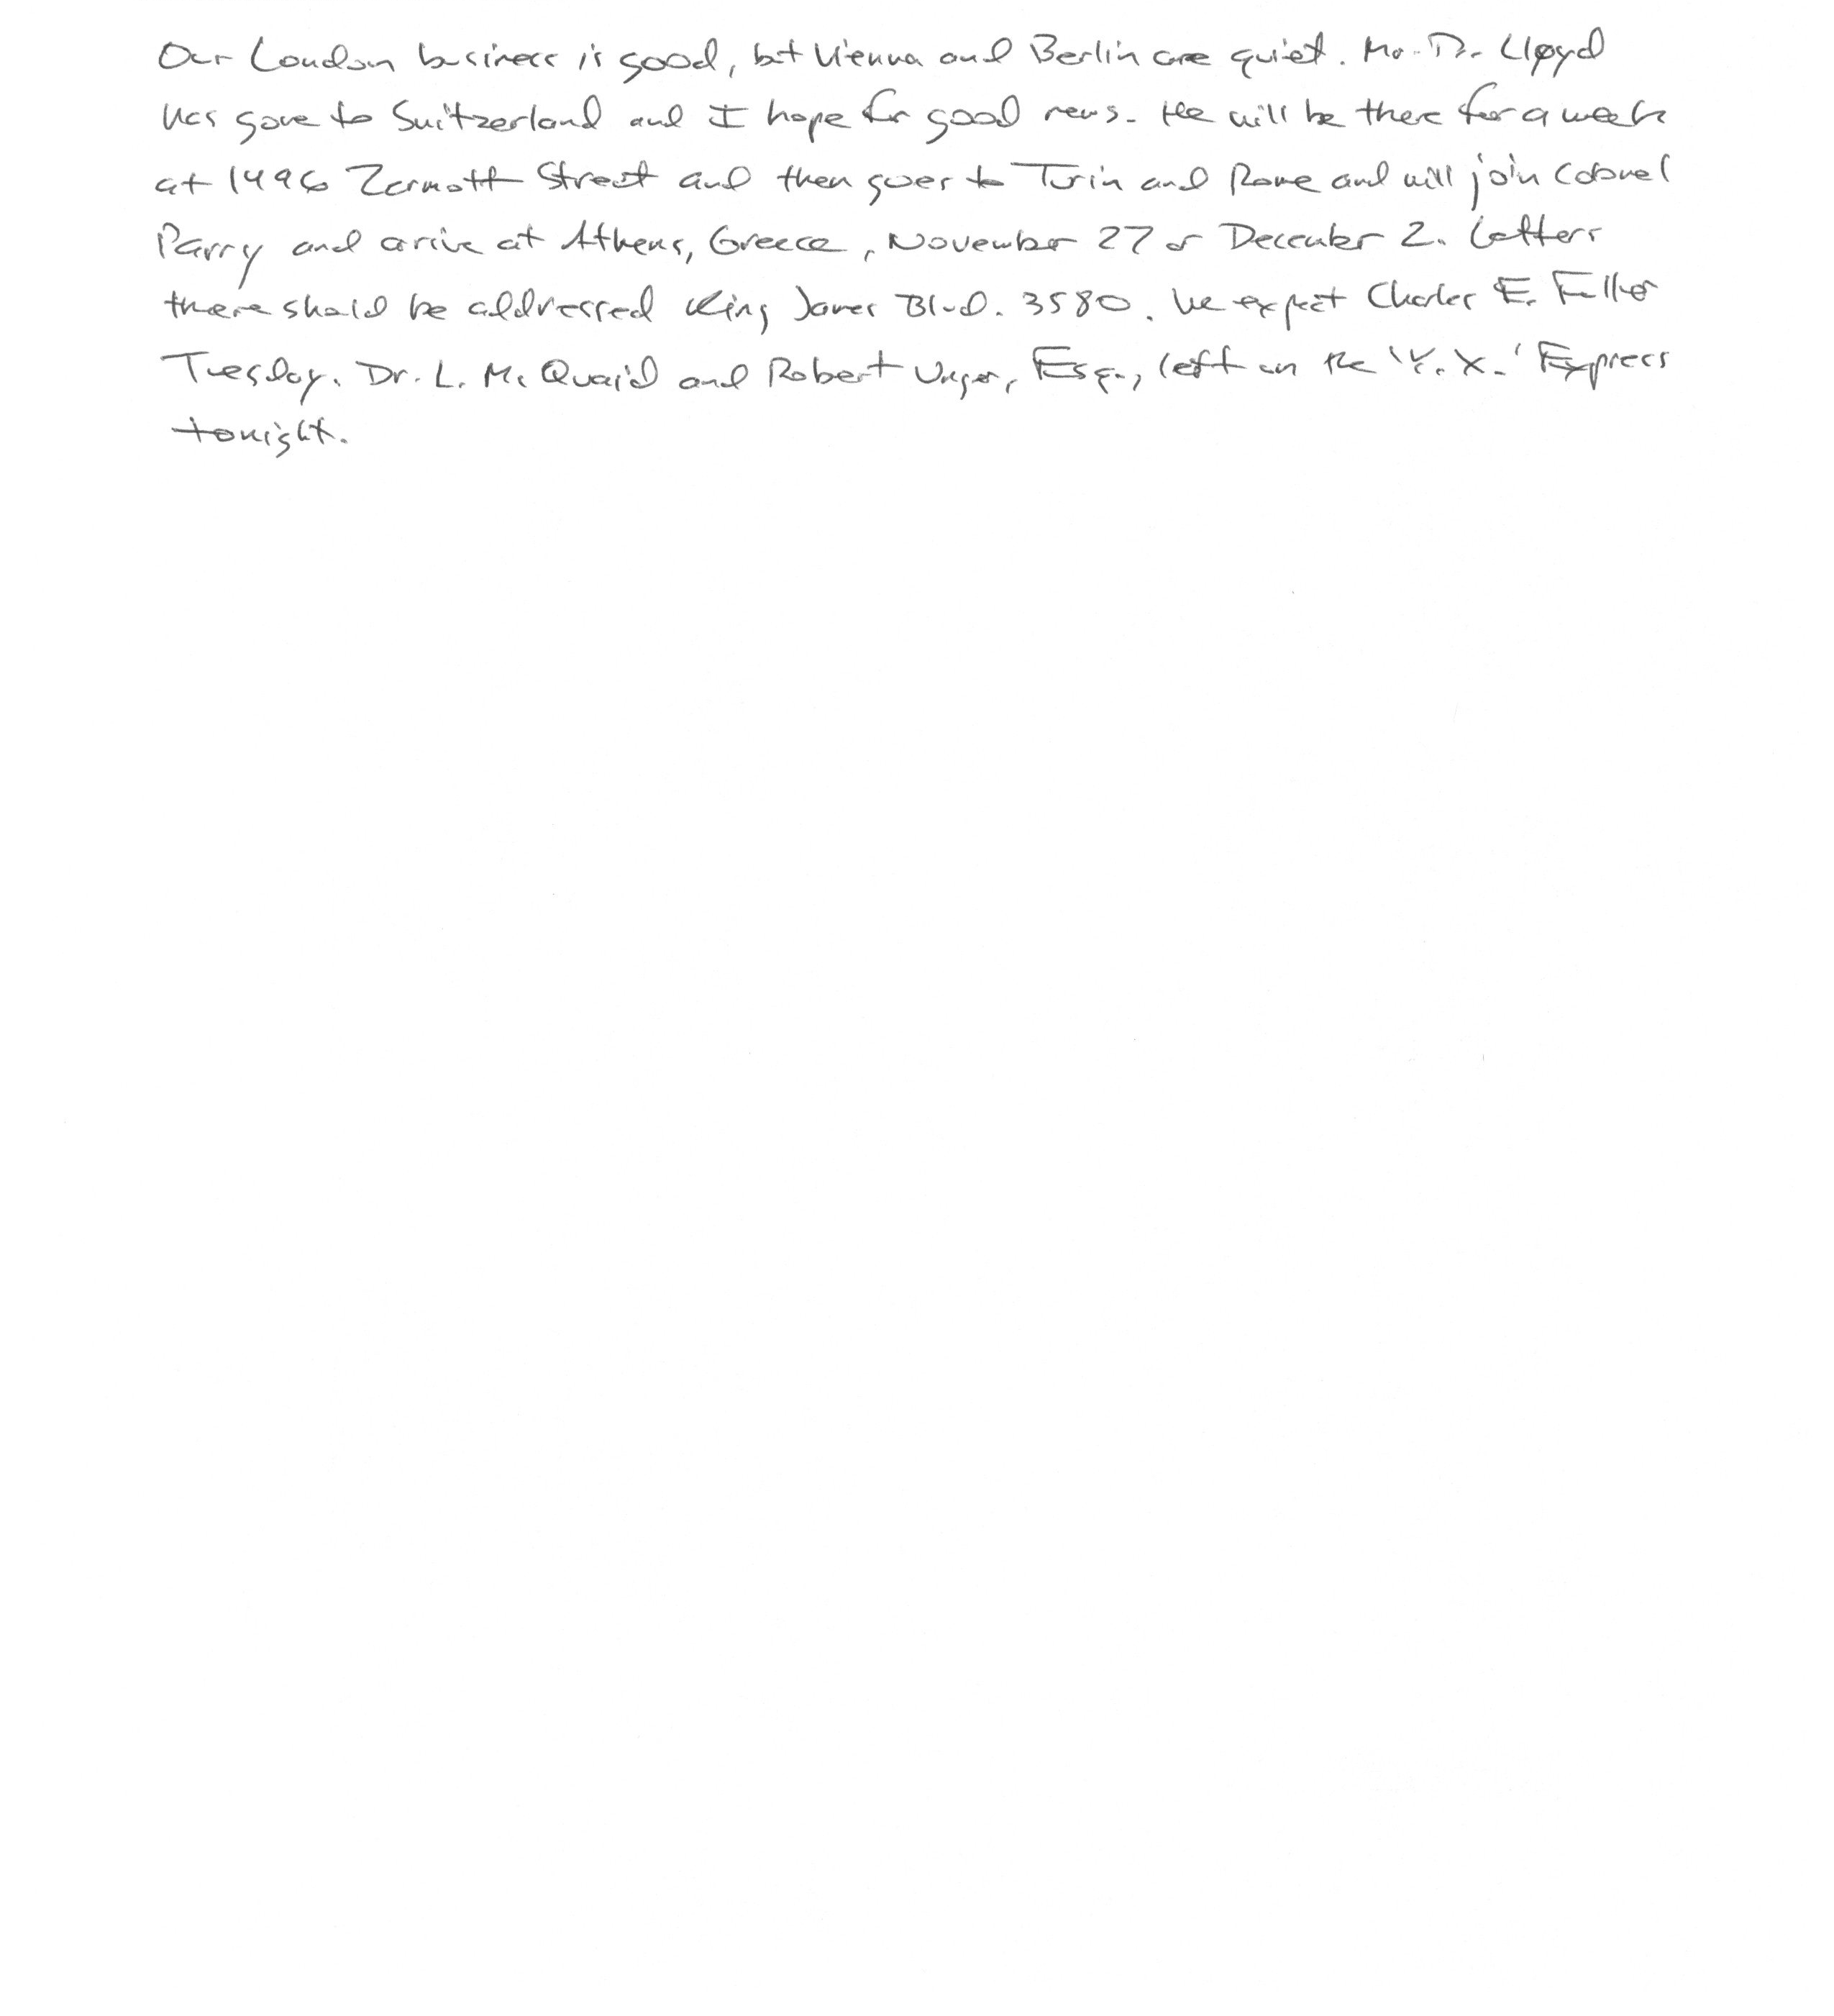 Our London business is good, but Vienna and Berlin are quiet. Mr. D. Lloyd
has gone to Switzerland and I hope for good news. He will be there for a week
at 1496 Zermott Street and then goes to Turin and Rome and will join Colonel
Parry and arrive at Athens, Greece, November 27 or December 2. Letters
there should be addressed King James Blvd. 3580. We expect Charles E. Fuller
Tuesday. Dr. L. McQuaid and Robert Unger, Esq., left on the 'Y.X.' Express
tonight.